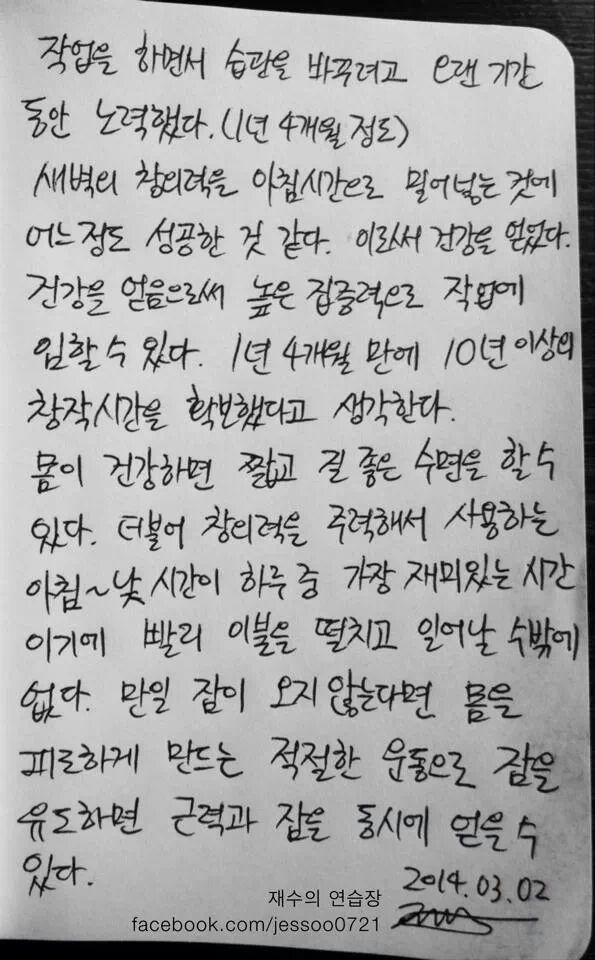 작업을 하면서 습관을 바꾸려고 오랜 기간
동안 노력했다. (1년 4개월 정도)
새벽의 창의력을 아침시간으로 밀어넣는 것에
어느정도 성공한 것 같다. 이로써 건강을 얻었다.
건강을 얻음으로써 높은 집중력으로 작업에
임할 수 있다. 1년 4개월 만에 10년 이상의
창작시간을 확보했다고 생각한다.
몸이 건강하면 짧고 질 좋은 수면을 할 수
있다. 더불어 창의력을 주력해서 사용하는
아침~낮 시간이 하루 중 가장 재미있는 시간
이기에 빨리 이불을 떨치고 일어날 수밖에
없다. 만일 잠이 오지 않는다면 몸을
피로하게 만드는 적절한 운동으로 잠을
유도하면 근력과 잠을 동시에 얻을 수
있다.
2014.03.02
재수의 연습장
facebook.com/jessoo0721